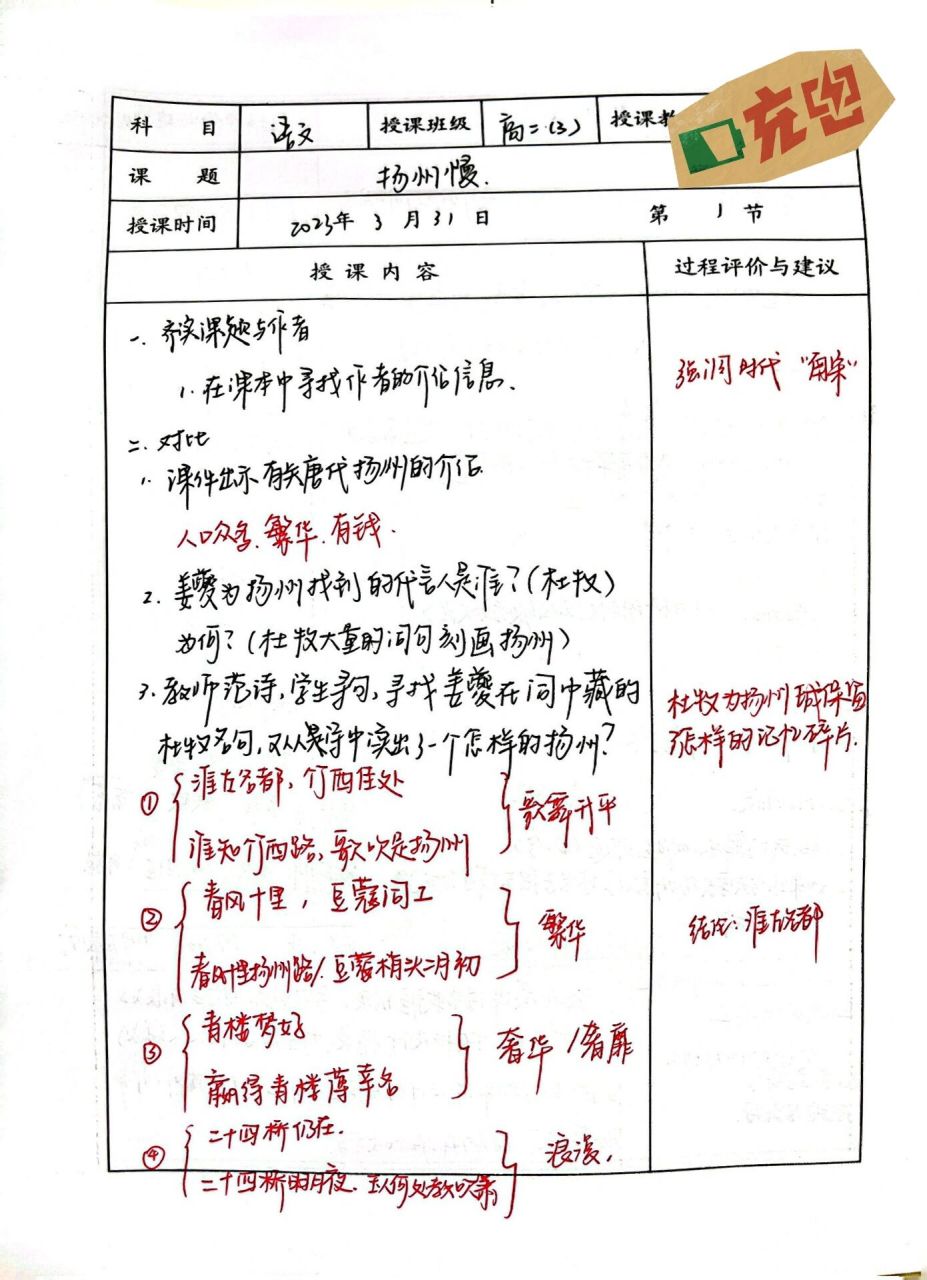 科 目 语文 授课班级 高二(3) 授课教
充电
课 题 扬州慢.
授课时间 2023年 3 月 31 日 第 1 节
授 课 内 容 过程评价与建议
一. 齐读课题与作者
1. 在课本中寻找作者的介绍信息. 强调时代
二. 对比
1. 课件出示有关唐代扬州的介绍.
人口众多. 繁华. 有钱.
2. 姜夔为扬州找到的代言人是谁?(杜牧)
为何?(杜牧大量的词句刻画扬州)
3. 教师范读,学生寻句,寻找姜夔在词中藏的
杜牧名句,又从是导中读出了一个怎样的扬州?
杜牧为扬州城保留
怎样的记忆碎片.
① 淮左名都,竹西佳处
谁知竹西路,歌吹是扬州
歌舞升平
② 春风十里,豆蔻词工
春风十里扬州路/豆蔻梢头二月初
繁华
结论:淮左名都
③ 青楼梦好
赢得青楼薄幸名
奢华/奢靡
④ 二十四桥仍在.
二十四桥明月夜.玉人何处教吹箫
浪漫.